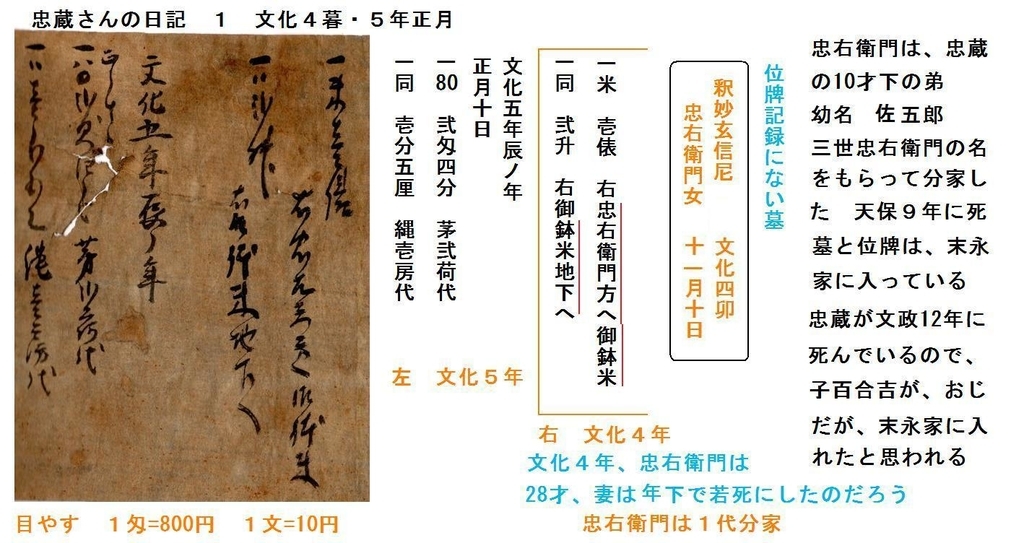 忠蔵さんの日記　１　文化４暮・５年正月
一米　壱俵　右忠右衛門方へ御鉢米
一同　弐升　右御鉢米地下へ
文化五年辰ノ年
正月十日
一80　弐匁四分　茅弐荷代
一同　壱分五厘　縄壱房代
左　文化５年
右　文化４年
位牌記録にない墓
釈妙玄信尼　文化四卯
忠右衛門女　十一月十日
忠右衛門は、忠蔵
の10才下の弟
幼名　佐五郎
三世忠右衛門の名
をもらって分家し
た　天保９年に死
墓と位牌は、末永
家に入っている
忠蔵が文政12年に
死んでいるので、
子百合吉が、おじ
だが、末永家に入
れたと思われる
文化４年、忠右衛門は
28才、妻は年下で若死にしたのだろう
忠右衛門は１代分家
目やす　１匁=800円　１文=10円
文化五年辰ノ年